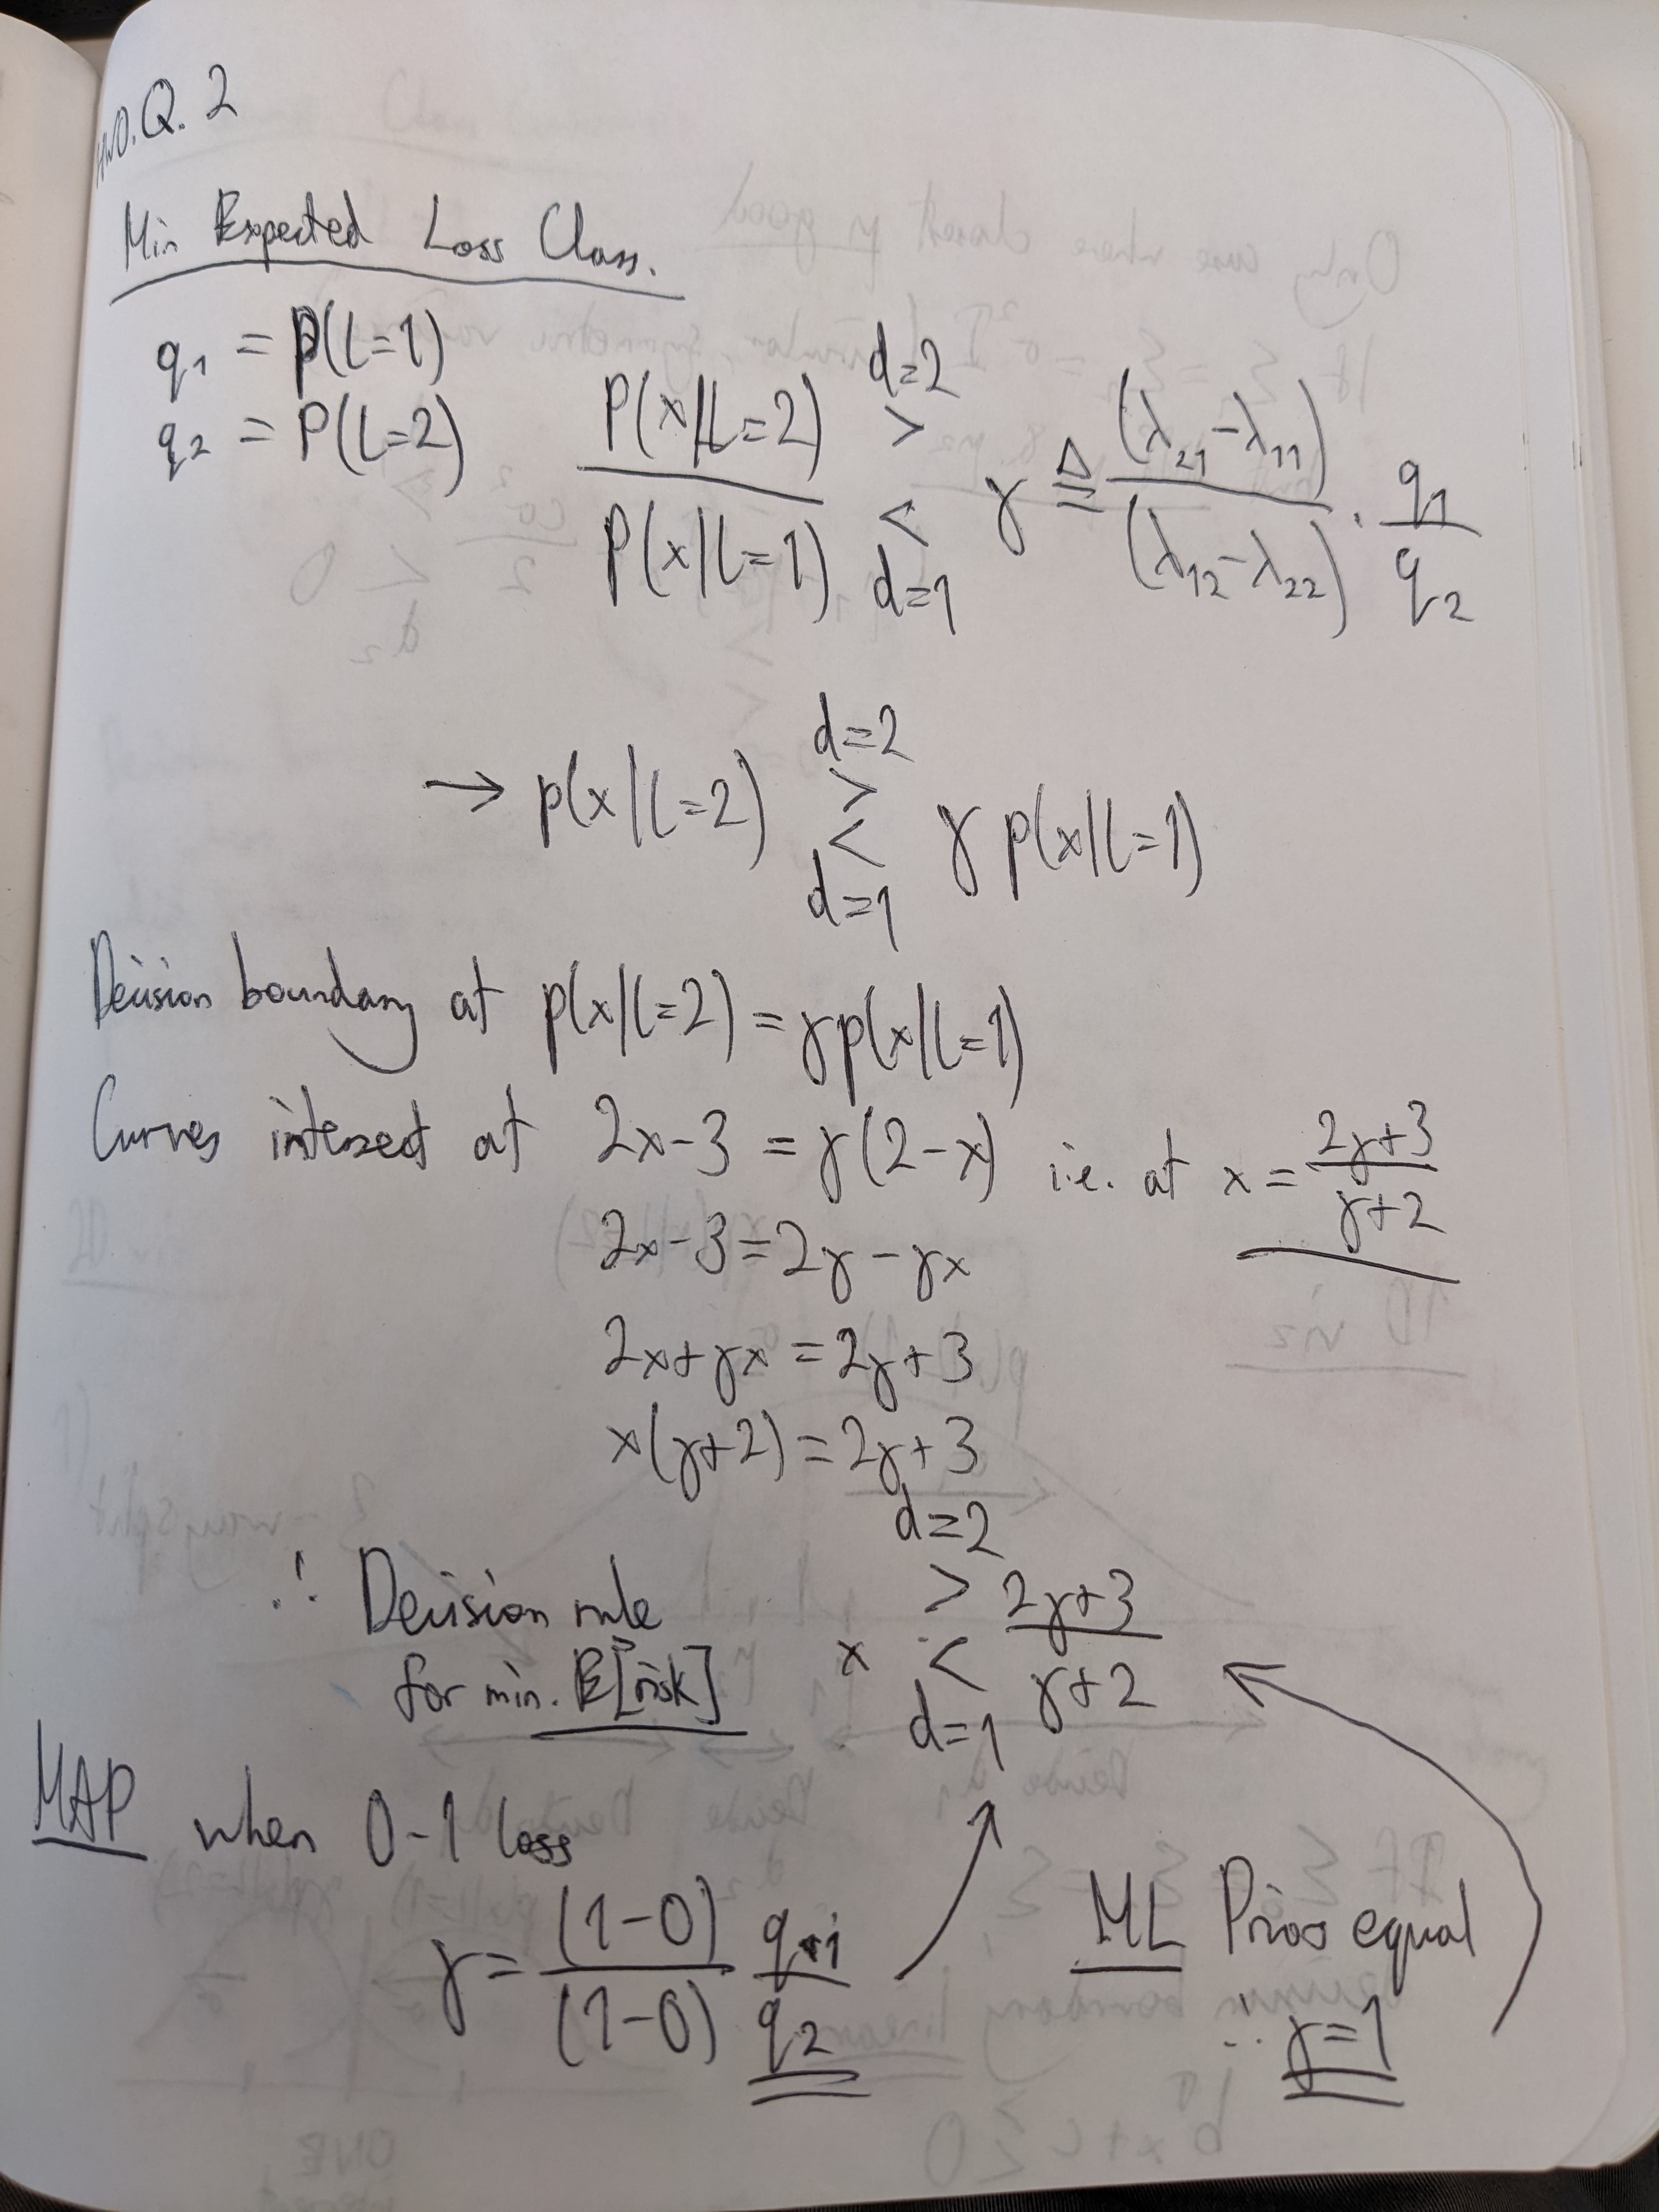 HW0.Q.2
Min Expected Loss Class.
q₁ = P(L=1)
q₂ = P(L=2)
P(x|L=2) / P(x|L=1) >(d=2) <(d=1) γ ≜ (λ₂₁-λ₁₁) / (λ₁₂-λ₂₂) · q₁/q₂
→ p(x|L=2) >(d=2) <(d=1) γ p(x|L=1)
Decision boundary at p(x|L=2) = γp(x|L=1)
Curves intersect at 2x-3 = γ(2-x) i.e. at x = (2γ+3)/(γ+2)
2x-3=2γ-γx
2x+γx = 2γ+3
x(γ+2)=2γ+3
∴ Decision rule
for min. E[risk]
x >(d=2) <(d=1) (2γ+3)/(γ+2)
MAP when 0-1 loss
γ = (1-0)/(1-0) q₁/q₂
ML Priors equal
∴ γ=1